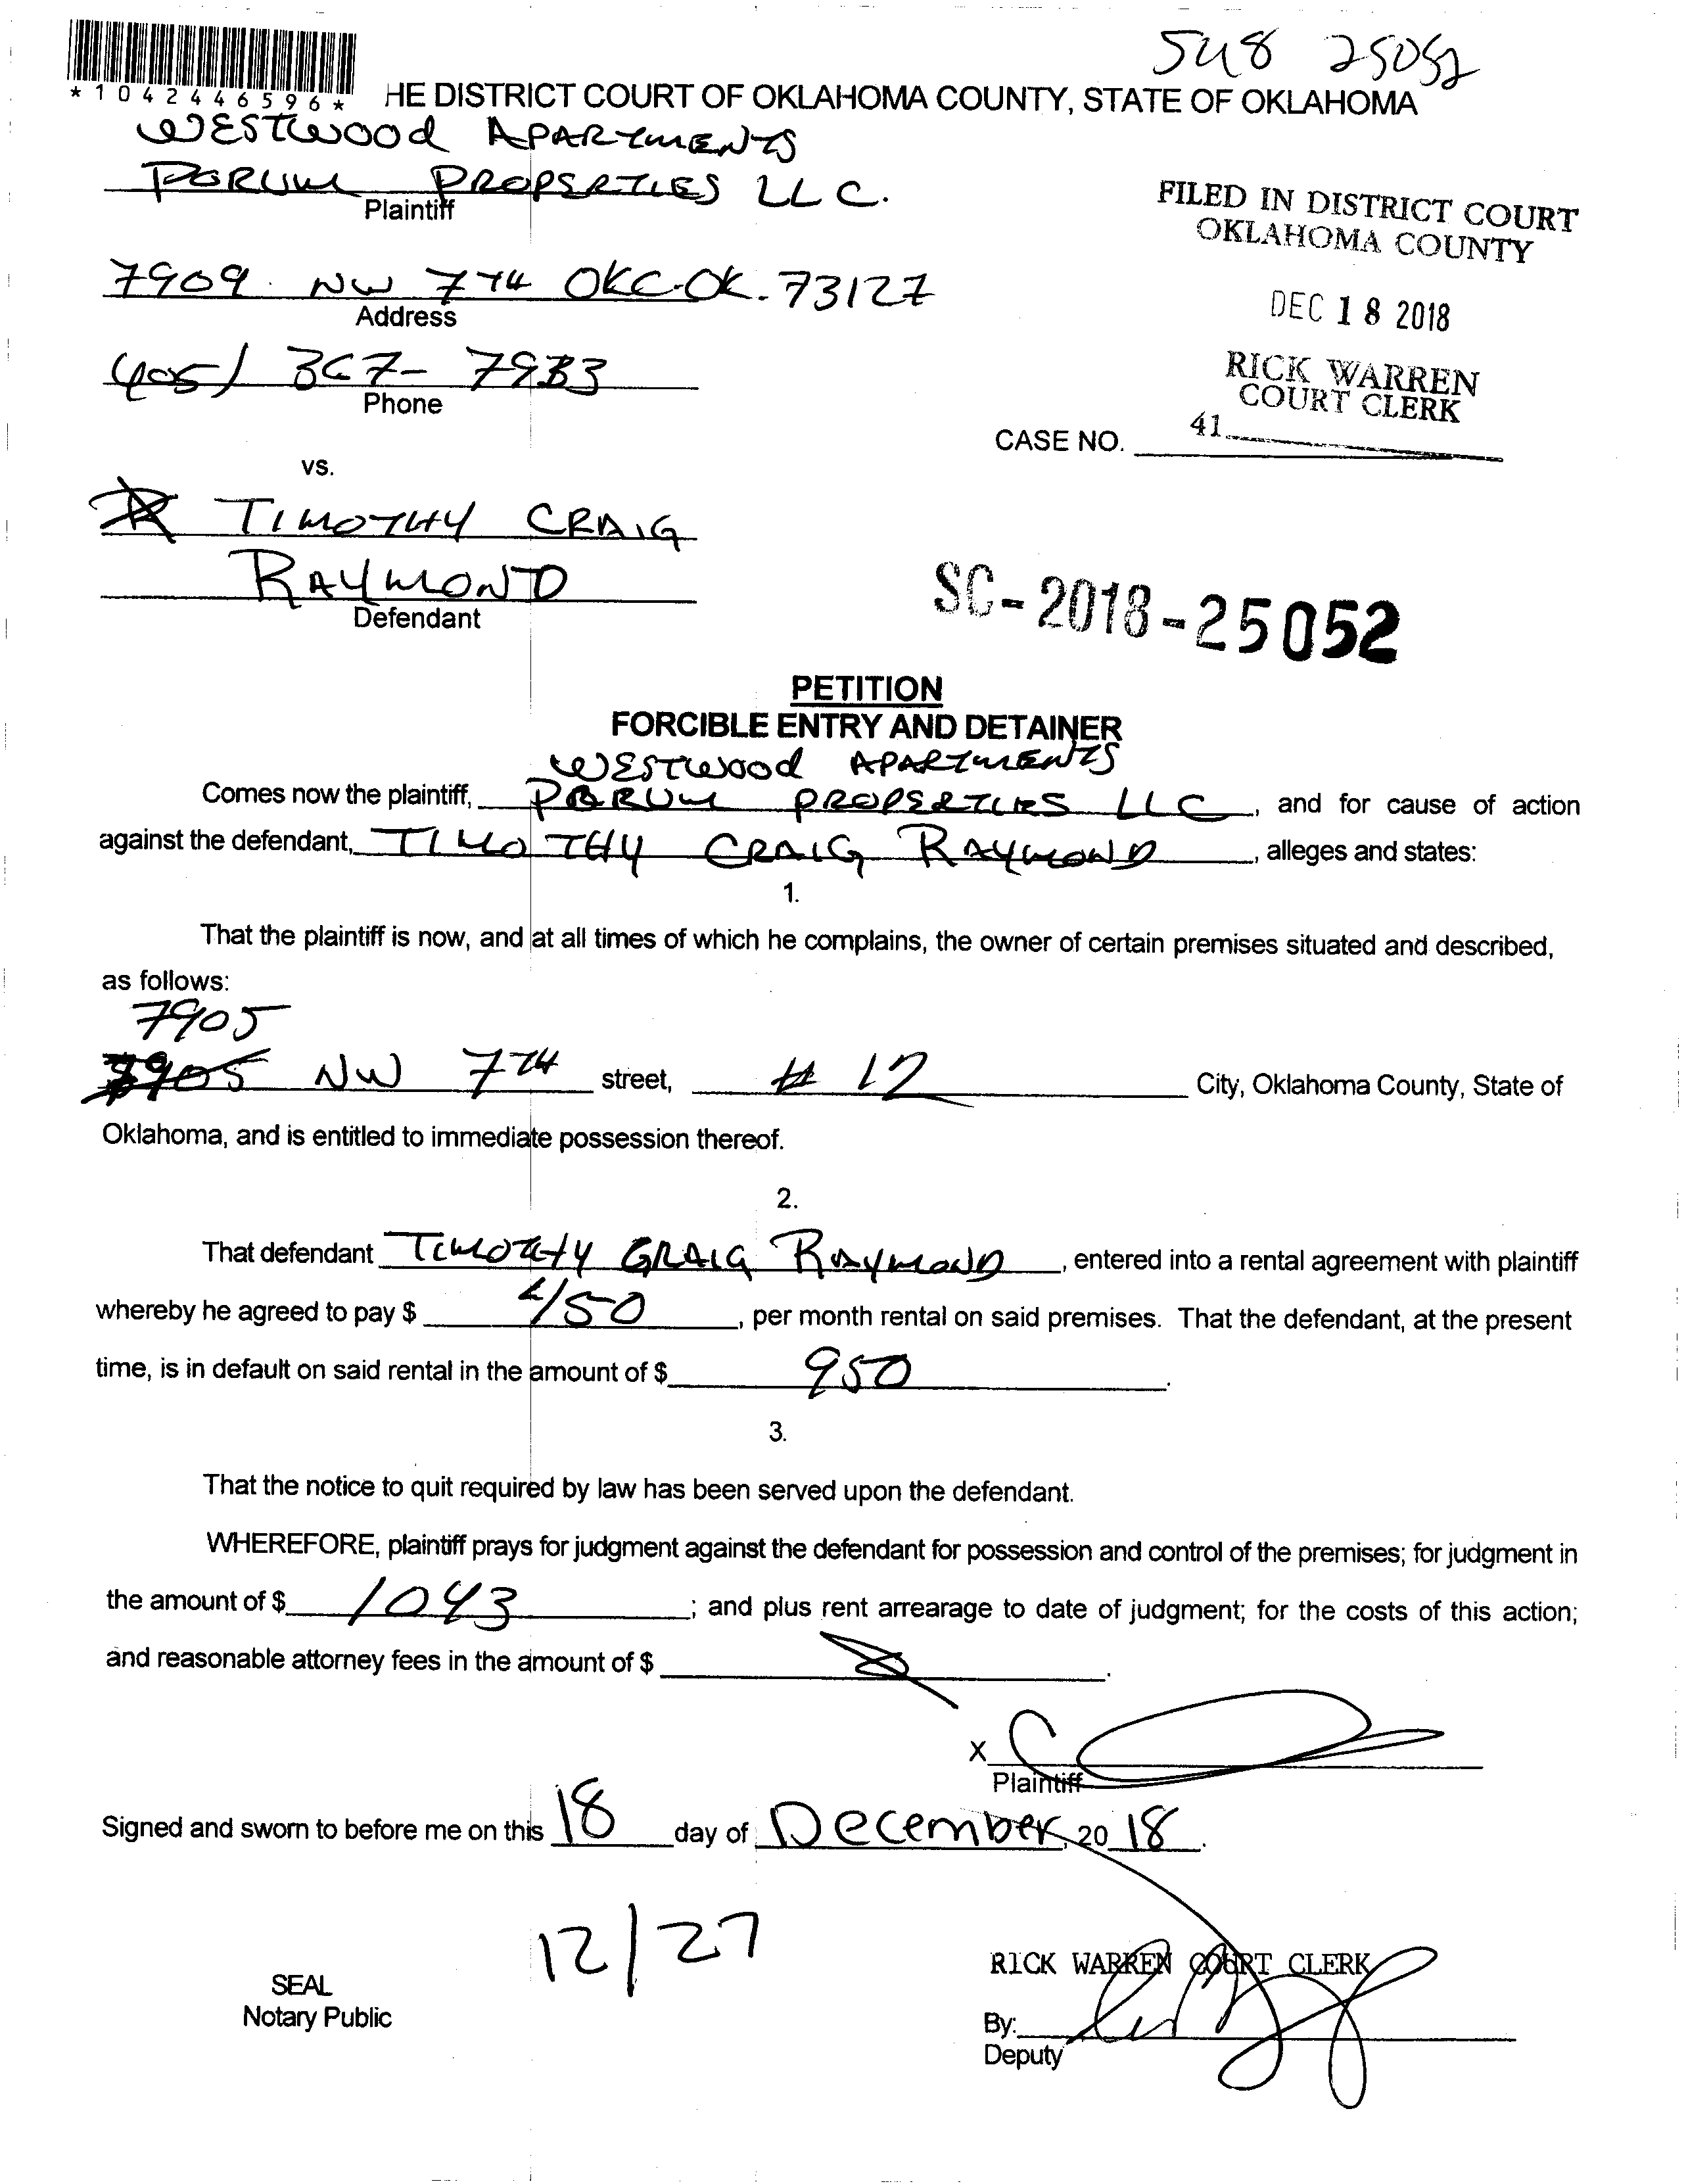 548 25052
*1042446596*
HE DISTRICT COURT OF OKLAHOMA COUNTY, STATE OF OKLAHOMA
WESTWOOD APARTMENTS
PORUM PROPERTIES LLC.
Plaintiff
FILED IN DISTRICT COURT
OKLAHOMA COUNTY
7909 NW 7TH OKC-OK. 73127
Address
DEC 18 2018
(405) 367-7933
Phone
RICK WARREN
COURT CLERK
CASE NO. 41
vs.
TIMOTHY CRAIG
RAYMOND
Defendant
SC-2018-25052
PETITION
FORCIBLE ENTRY AND DETAINER
WESTWOOD APARTMENTS
Comes now the plaintiff, PORUM PROPERTIES LLC, and for cause of action
against the defendant, TIMOTHY CRAIG RAYMOND, alleges and states:
1.
That the plaintiff is now, and at all times of which he complains, the owner of certain premises situated and described,
as follows:
7905
7905 NW 7TH street, # 12 City, Oklahoma County, State of
Oklahoma, and is entitled to immediate possession thereof.
2.
That defendant TIMOTHY GRAIG RAYMOND, entered into a rental agreement with plaintiff
whereby he agreed to pay $ 450, per month rental on said premises. That the defendant, at the present
time, is in default on said rental in the amount of $ 950.
3.
That the notice to quit required by law has been served upon the defendant.
WHEREFORE, plaintiff prays for judgment against the defendant for possession and control of the premises; for judgment in
the amount of $ 1043; and plus rent arrearage to date of judgment; for the costs of this action;
and reasonable attorney fees in the amount of $
X
Plaintiff
Signed and sworn to before me on this 18 day of December, 20 18.
12/27
SEAL
Notary Public
RICK WARREN COURT CLERK
By:
Deputy